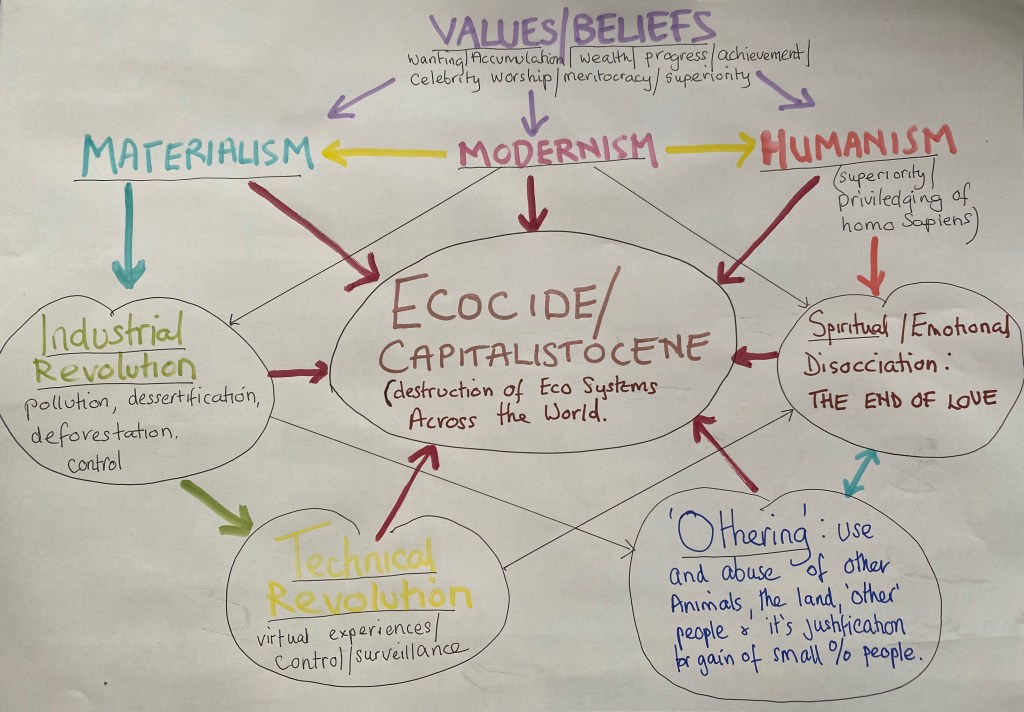 VALUES/BELIEFS
Wanting/Accumulation/wealth/progress/achievement/
Celebrity worship/meritocracy/superiority
MATERIALISM
MODERNISM
HUMANISM
(superiority/
priviledging of
homo Sapiens)
ECOCIDE/
CAPITALISTOCENE
(destruction of Eco Systems
Across the World.
Industrial
Revolution
pollution, dessertification,
deforestation.
control
Spiritual/Emotional
Disocciation:
THE END OF LOVE
Technical
Revolution
virtual experiences/
control/surveillance
'Othering': use
and abuse of other
Animals, the land, 'other'
people & it's justfication
for gain of small % people.